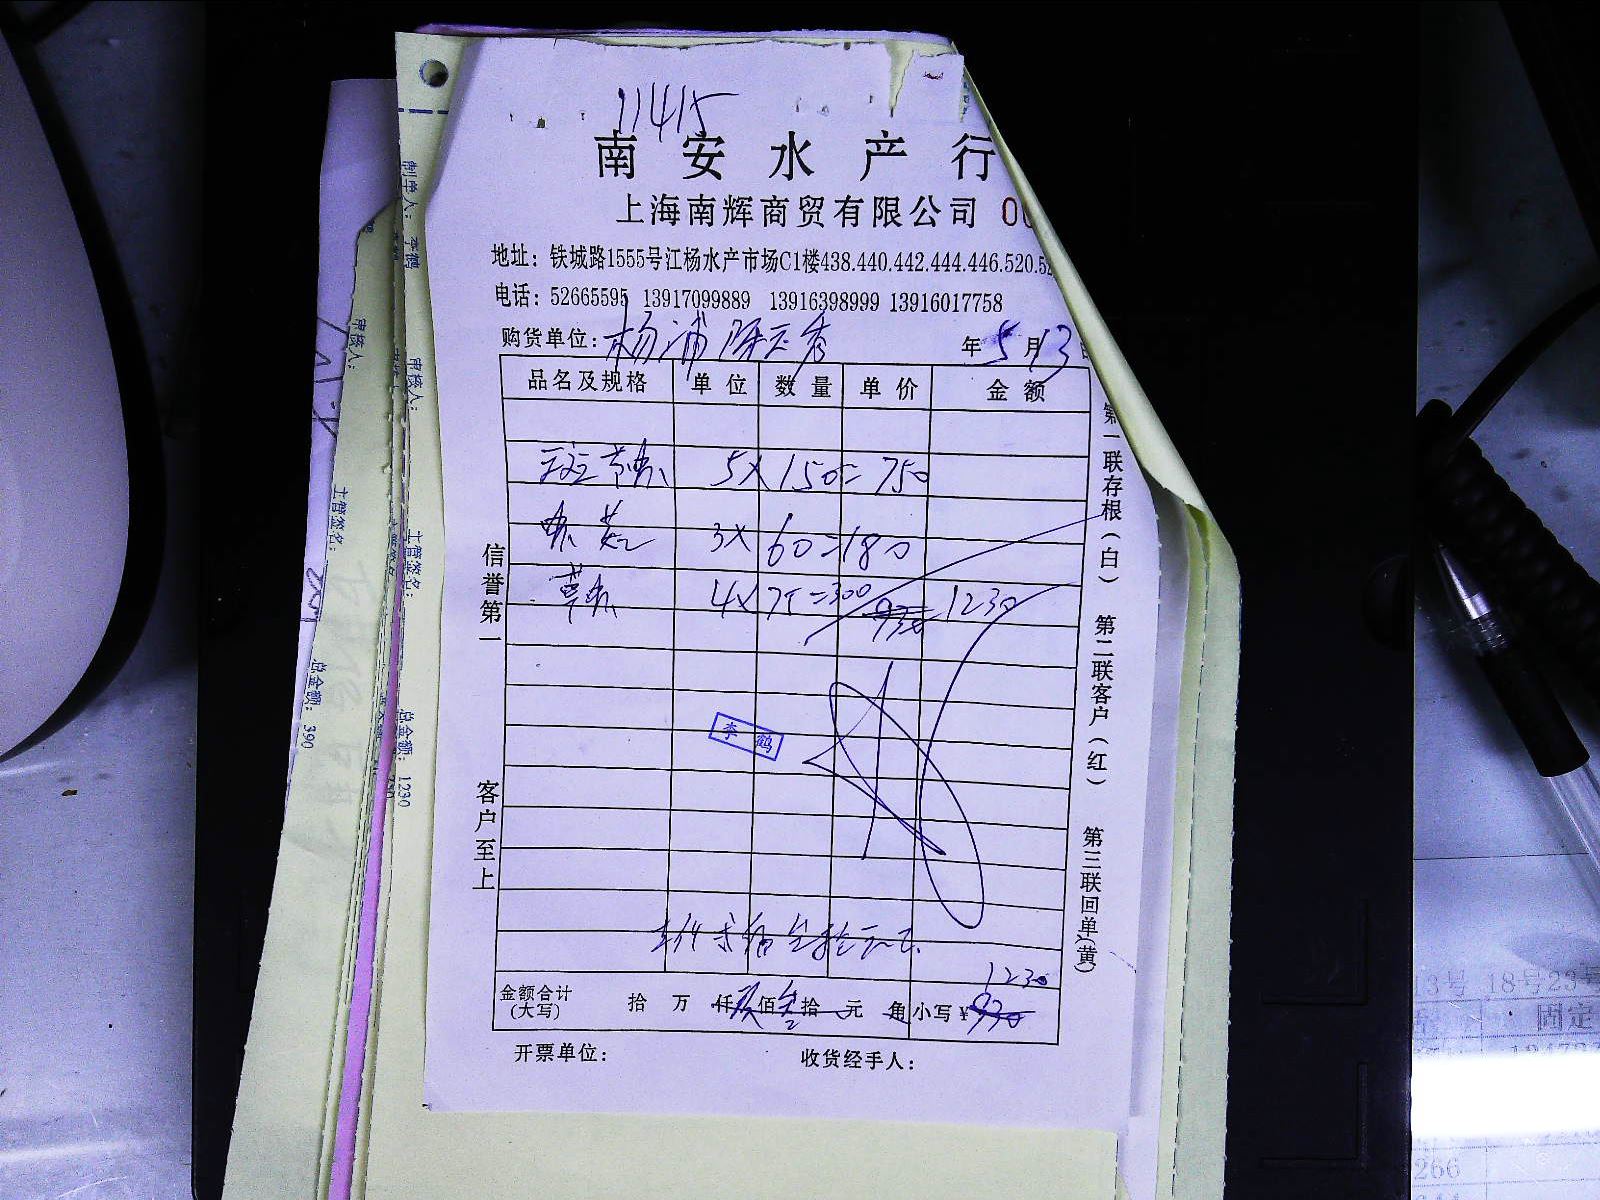 11415
南安水产行
上海南辉商贸有限公司 00
地址：铁城路1555号江杨水产市场C1楼438.440.442.444.446.520.52
电话：52665595 13917099889 13916398999 13916017758
购货单位：杨浦 年5月13日
品名及规格 单位 数量 单价 金额
5×150=750
3×60=180
4×75=300
930 1230
李鹤
1230
金额合计(大写) 拾万仟玖佰叁拾元角小写¥930
开票单位： 收货经手人：
信誉第一 客户至上
第一联存根（白） 第二联客户（红） 第三联回单（黄）
制单人：李鹤
审核人：
主管签名：
总金额：1230
审核人：
主管签名：
总金额：390
13号 18号23号
固定
266